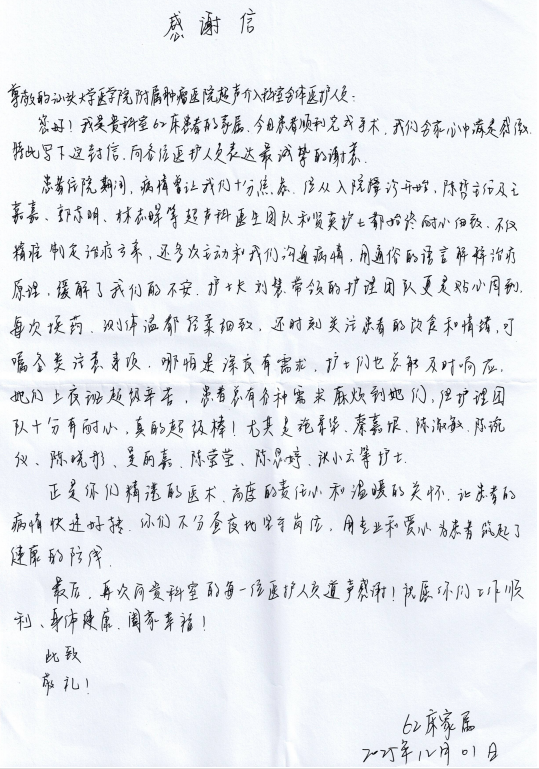 感谢信
尊敬的汕头大学医学院附属肿瘤医院超声介入科室全体医护人员:
您好!我是贵科室62床患者的家属,今日患者顺利完成手术,我们全家心中满是感激,
特此写下这封信,向各位医护人员表达最诚挚的谢意.
患者住院期间,病情曾让我们十分焦虑.但从入院接诊开始,陈哲主任及王
嘉嘉、郭东明、林志晖等超声科医生团队和贤真护士都始终耐心细致.不仅
精准制定治疗方案,还多次主动和我们沟通病情,用通俗的语言解释治疗
原理,缓解了我们的不安.护士长刘慧带领的护理团队更是贴心周到.
每次换药、测体温都轻柔细致,还时刻关注患者的饮食和情绪,叮
嘱各类注意事项.哪怕是深夜有需求,护士们也总能及时响应.
她们上夜班超级辛苦,患者总有各种需求麻烦到她们,但护理团
队十分有耐心,真的超级棒!尤其是 华、蔡嘉垠、陈淑敏、陈琬
仪、陈晓彤、吴丽嘉、陈莹莹、陈思婷、洪小云等护士.
正是你们精湛的医术、高度的责任心和温暖的关怀,让患者的
病情快速好转.你们不分昼夜地坚守岗位,用专业和爱心为患者筑起了
健康的防线.
最后,再次向贵科室的每一位医护人员道声感谢!祝愿你们工作顺
利、身体健康、阖家幸福!
此致
敬礼!
62床家属
2025年12月01日